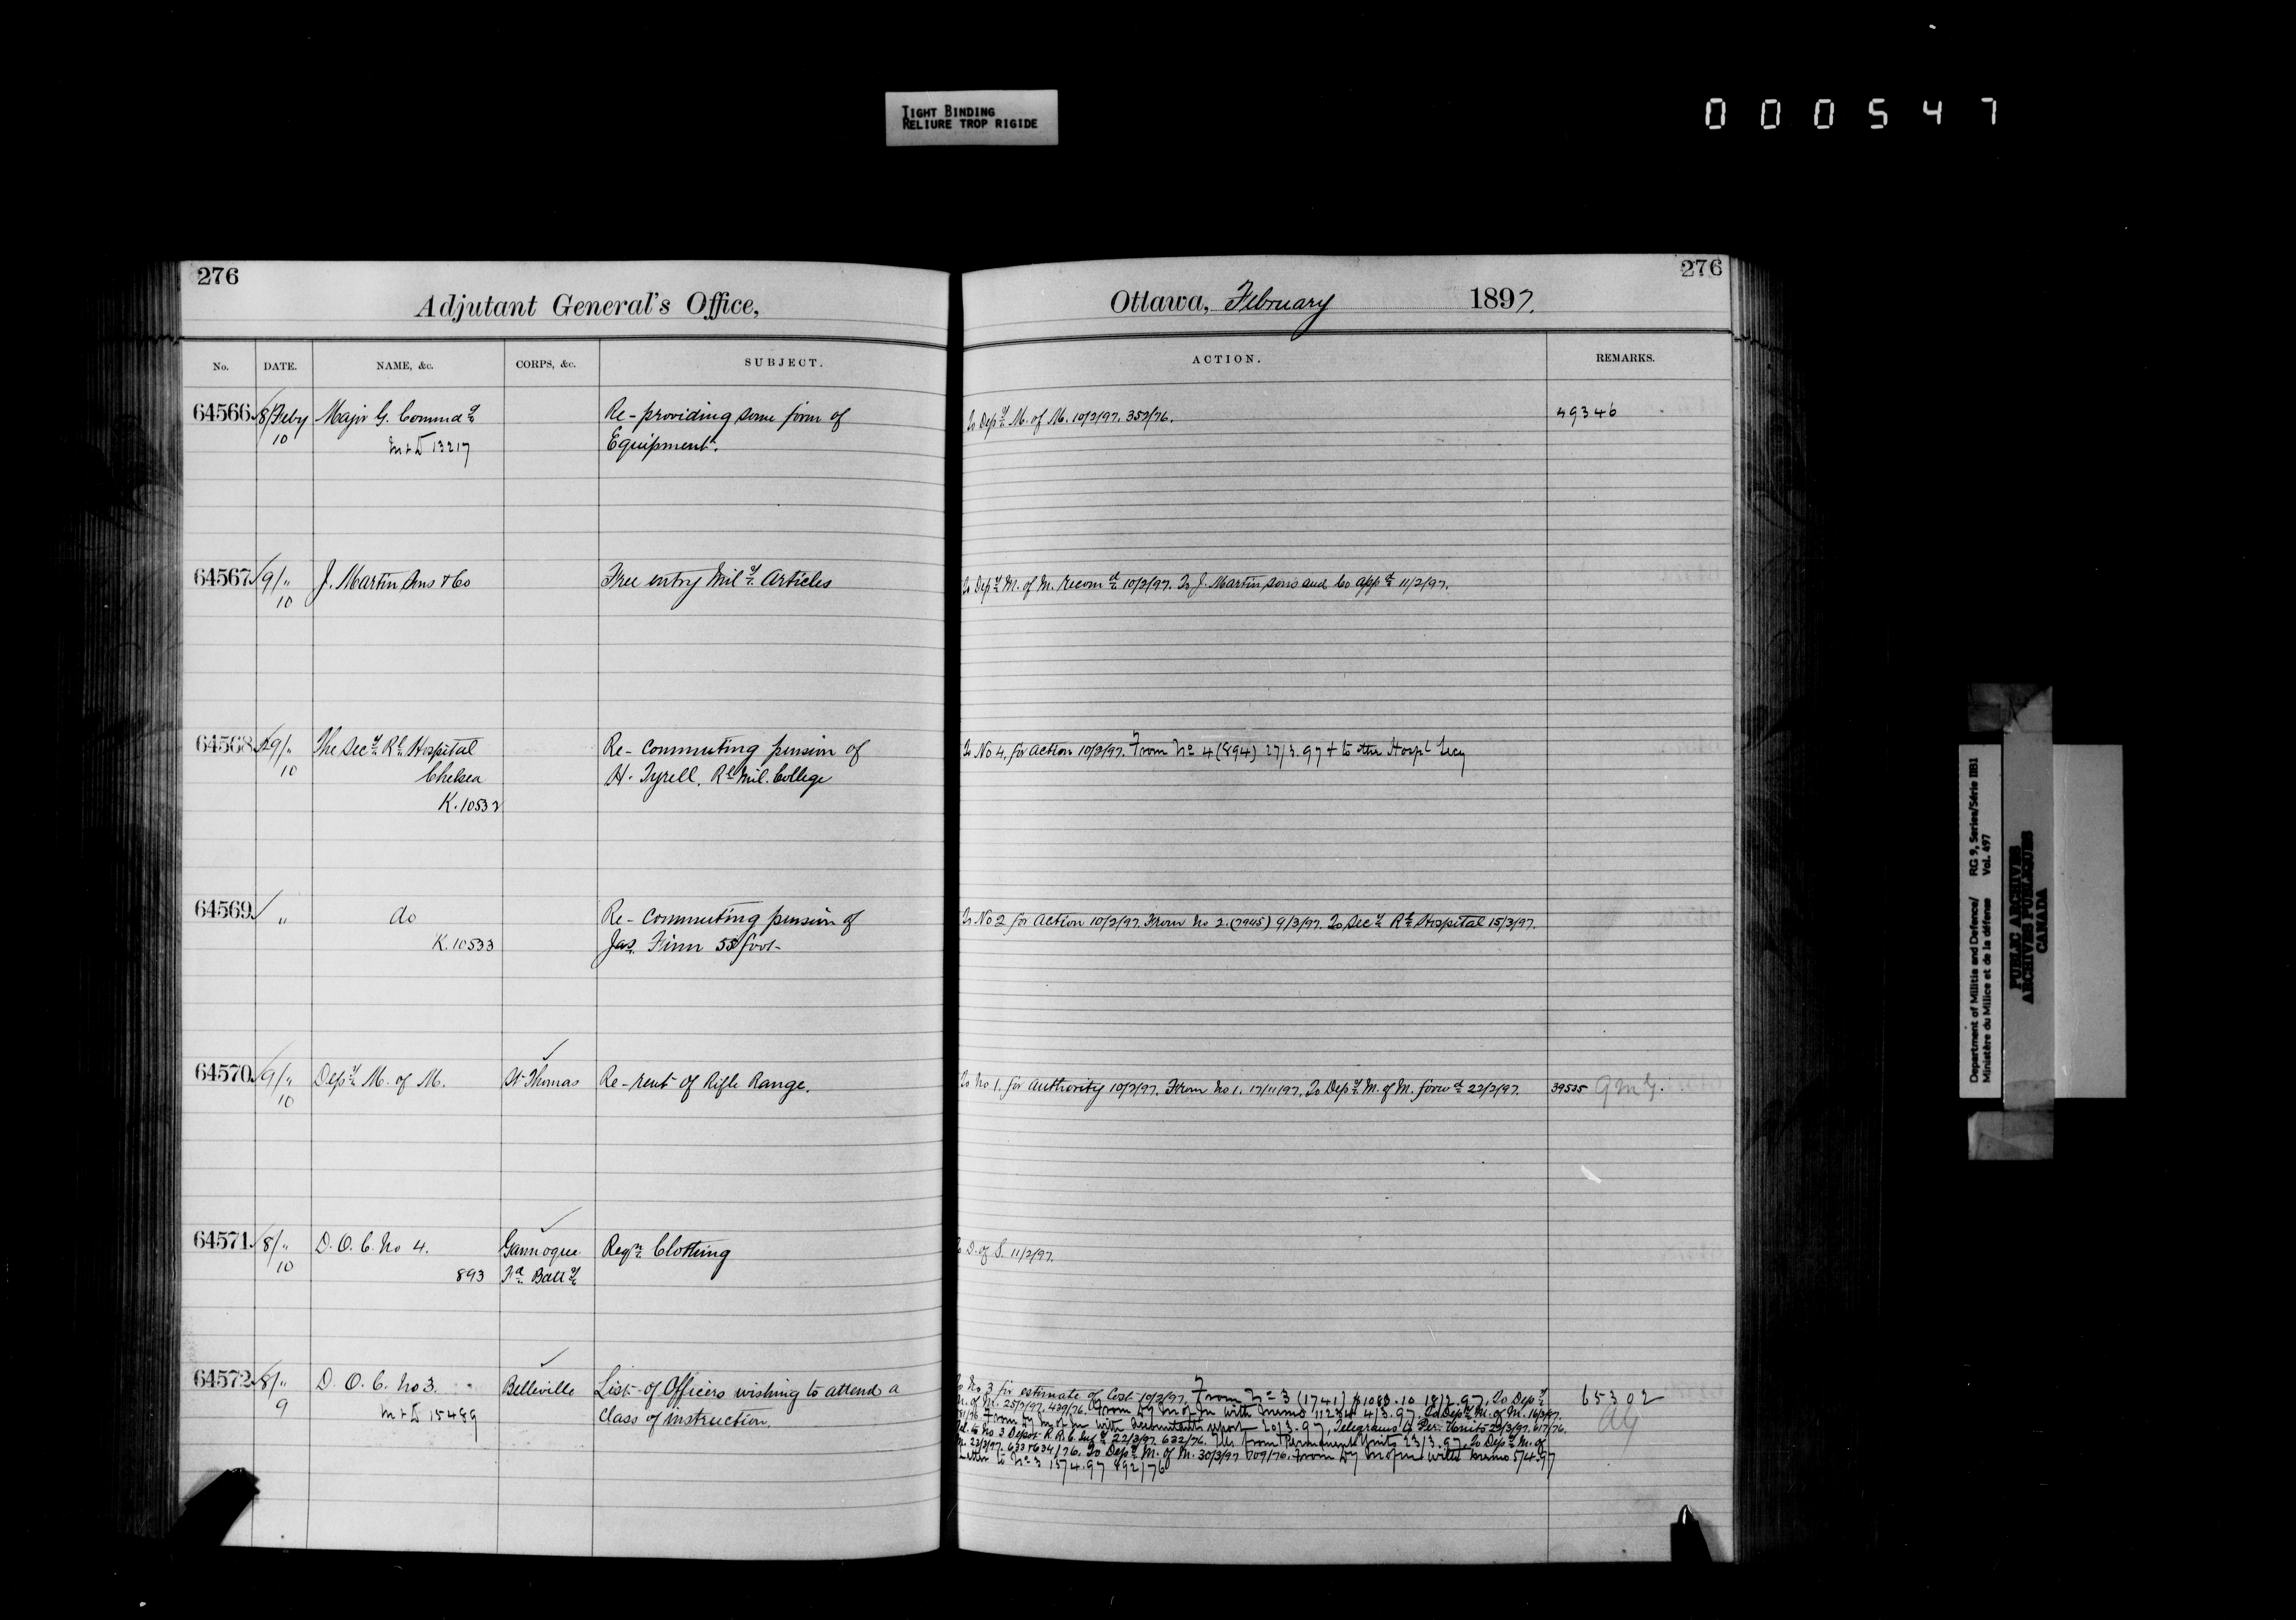 TIGHT BINDING
RELIURE TROP RIGIDE
000547
276
Adjutant General's Office,
No. DATE. NAME, &c. CORPS, &c. SUBJECT.
64566 8/Feby Major G. Commdg Re-providing some form of
10 M+D 13217 Equipment.
64567 9/„ J. Martin Sons & Co Free entry Mily Articles
10
64568 29/„ The Secy Rl Hospital Re-Commuting pension of
10 Chelsea H. Tyrell. Rl Mil. College
K.10532
64569 „ do Re-Commuting pension of
K.10533 Jas. Finn 55 foot
64570 9/„ Depy M. of M. St Thomas Re-rent of Rifle Range.
10
64571 8/„ D.O.C. No 4. Gannoque Reqn Clothing
10 893 Fd Batty
64572 8/„ D.O.C. No 3. Belleville List of Officers wishing to attend a
9 M+D 15489 Class of instruction.
276
Ottawa, February 1897.
ACTION. REMARKS.
To Depy M. of M. 10/2/97. 352/76. 49346
To Depy M. of M. recomd 10/2/97. To J. Martin sons and Co appd 11/2/97.
To No 4, for action 10/2/97. From No 4 (894) 27/3.97 + to the Hospl Secy
To No 2 for action 10/2/97. From No 2. (7945) 9/3/97. To Secy Rl Hospital 15/3/97.
To No 1. for authority 10/2/97. From No 1. 17/11/97. To Depy M. of M. forwd 22/2/97. 39525 QMG.
To D. of S. 11/2/97.
To No 3 for estimate of Cost 10/2/97. From No 3 (1741) $1083.10 18/2.97. To Depy 65302
M. of M. 25/2/97. 429/76. From Dy M of M with memo 11234 4/3.97. To Depy M. of M. 16/3/97. AG
From Dy M of M with Accountants report 20/3.97. Telegrams to Per. Units 23/3/97. 617/76.
Tel. to No 3 Depot R.R.C. Infy 22/3/97. 632/76. from Permanent Units 23/3.97. To Depy M. of
M. 23/3/97. 633+634/76. To Depy M. of M. 30/3/97 709/76. From Dy M of M with memo 5/4.97
Letter to No 3 15/4.97 892/76
Department of Militia and Defence/ RG 9, Series/Série IIB1
Ministère du Milice et de la défense Vol. 497
PUBLIC ARCHIVES
ARCHIVES PUBLIQUES
CANADA